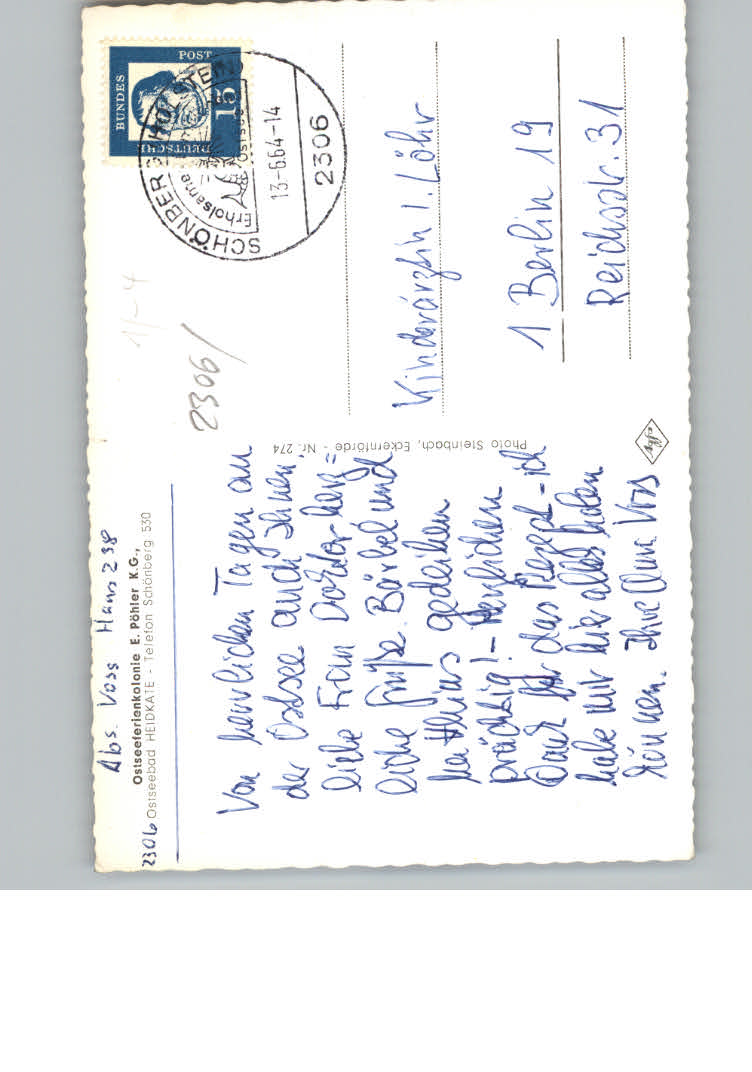 Abs. Voss Haus 238
Ostseeferienkolonie E. Pöhler K.G.,
2306 Ostseebad HEIDKATE - Telefon Schönberg 530
Von herrlichen Tagen an
der Ostsee auch Ihnen,
liebe Frau Doktor herz=
liche Grüße. Bärbel und
Matthias gedeihen
prächtig! - Herzlichen
Dank für das Rezept - ich
habe mir hier alles holen
können. Ihre Voss
Photo Steinbach, Eckernförde - Nr. 274
DEUTSCHE
BUNDES
POST
15
SCHÖNBERG HOLSTEIN
Erholsame
Ostsee
13-6.64-14
2306
2306/
Kinderärztin I. Löhr
1 Berlin 19
Reichsstr. 31
Agfa